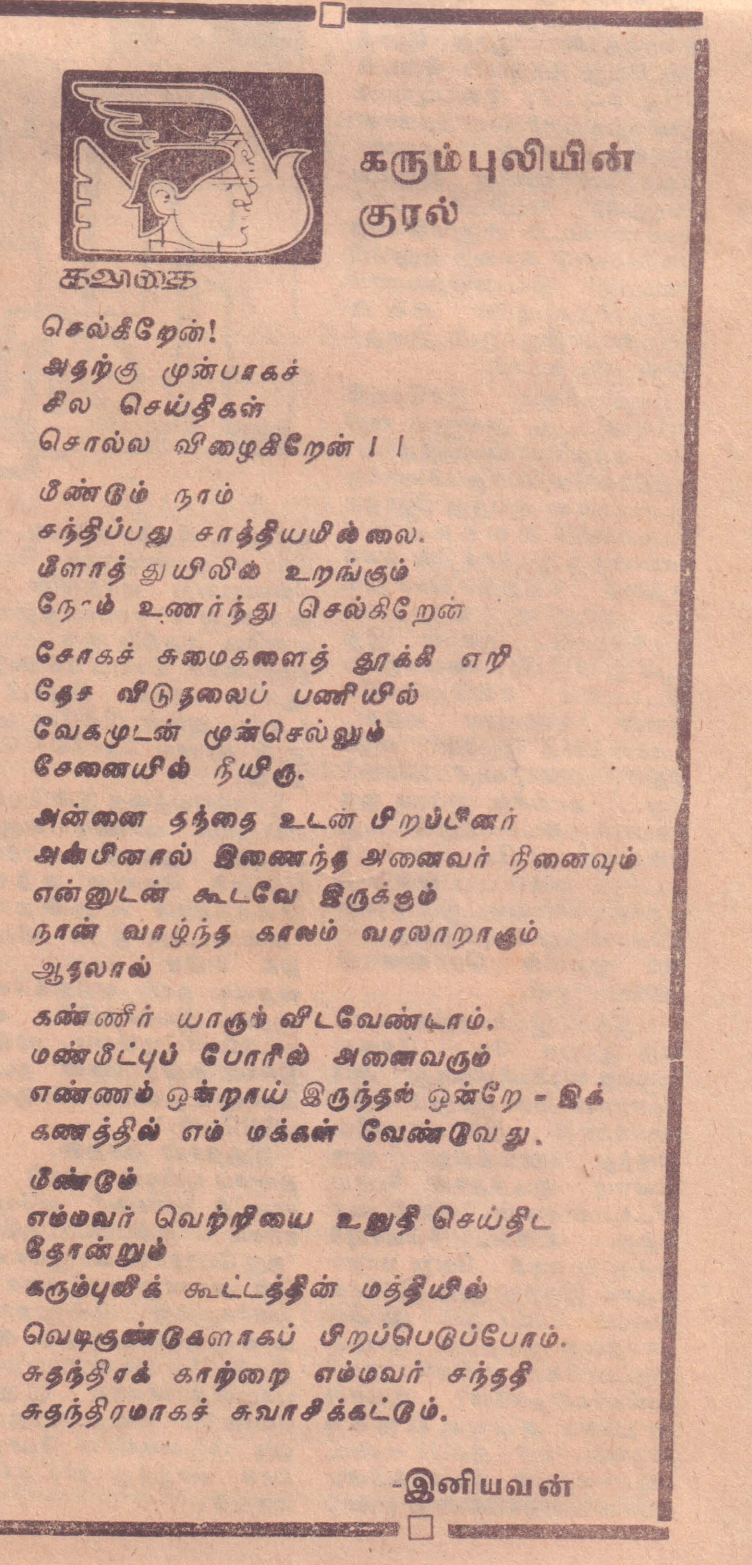 கரும்புலியின்
குரல்
கவிதை
செல்கிறேன்!
அதற்கு முன்பாகச்
சில செய்திகள்
சொல்ல விழைகிறேன் ! !
மீண்டும் நாம்
சந்திப்பது சாத்தியமில்லை.
மீளாத் துயிலில் உறங்கும்
உணர்ந்து செல்கிறேன்
சோகச் சுமைகளைத் தூக்கி எறி
தேச விடுதலைப் பணியில்
வேகமுடன் முன்செல்லும்
சேனையில் நீயிரு.
அன்னை தந்தை உடன் பிறப்பினர்
அன்பினால் இணைந்த அனைவர் நினைவும்
என்னுடன் கூடவே இருக்கும்
நான் வாழ்ந்த காலம் வரலாறாகும்
ஆதலால்
கண்ணீர் யாரும் விடவேண்டாம்.
மண்மீட்புப் போரில் அனைவரும்
எண்ணம் ஒன்றாய் இருந்தல் ஒன்றே - இக்
கணத்தில் எம் மக்கள் வேண்டுவது.
மீண்டும்
எம்மவர் வெற்றியை உறுதி செய்திட
தோன்றும்
கரும்புலிக் கூட்டத்தின் மத்தியில்
வெடிகுண்டுகளாகப் பிறப்பெடுப்போம்.
சுதந்திரக் காற்றை எம்மவர் சந்ததி
சுதந்திரமாகச் சுவாசிக்கட்டும்.
-இனியவன்